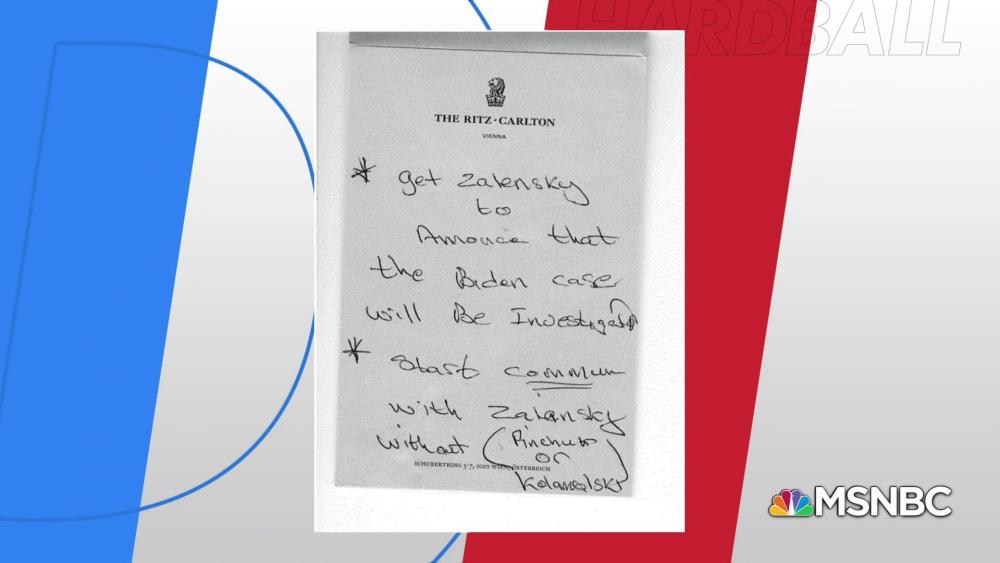 HARDBALL
THE RITZ-CARLTON
VIENNA
* get Zalensky
to
Annouce that
the Biden case
will Be Investigated
* Start commun
with Zalansky
without (Pinchuk
or
Kolamolski)
SCHUBERTRING 5-7, 1010 WIEN, ÖSTERREICH
MSNBC